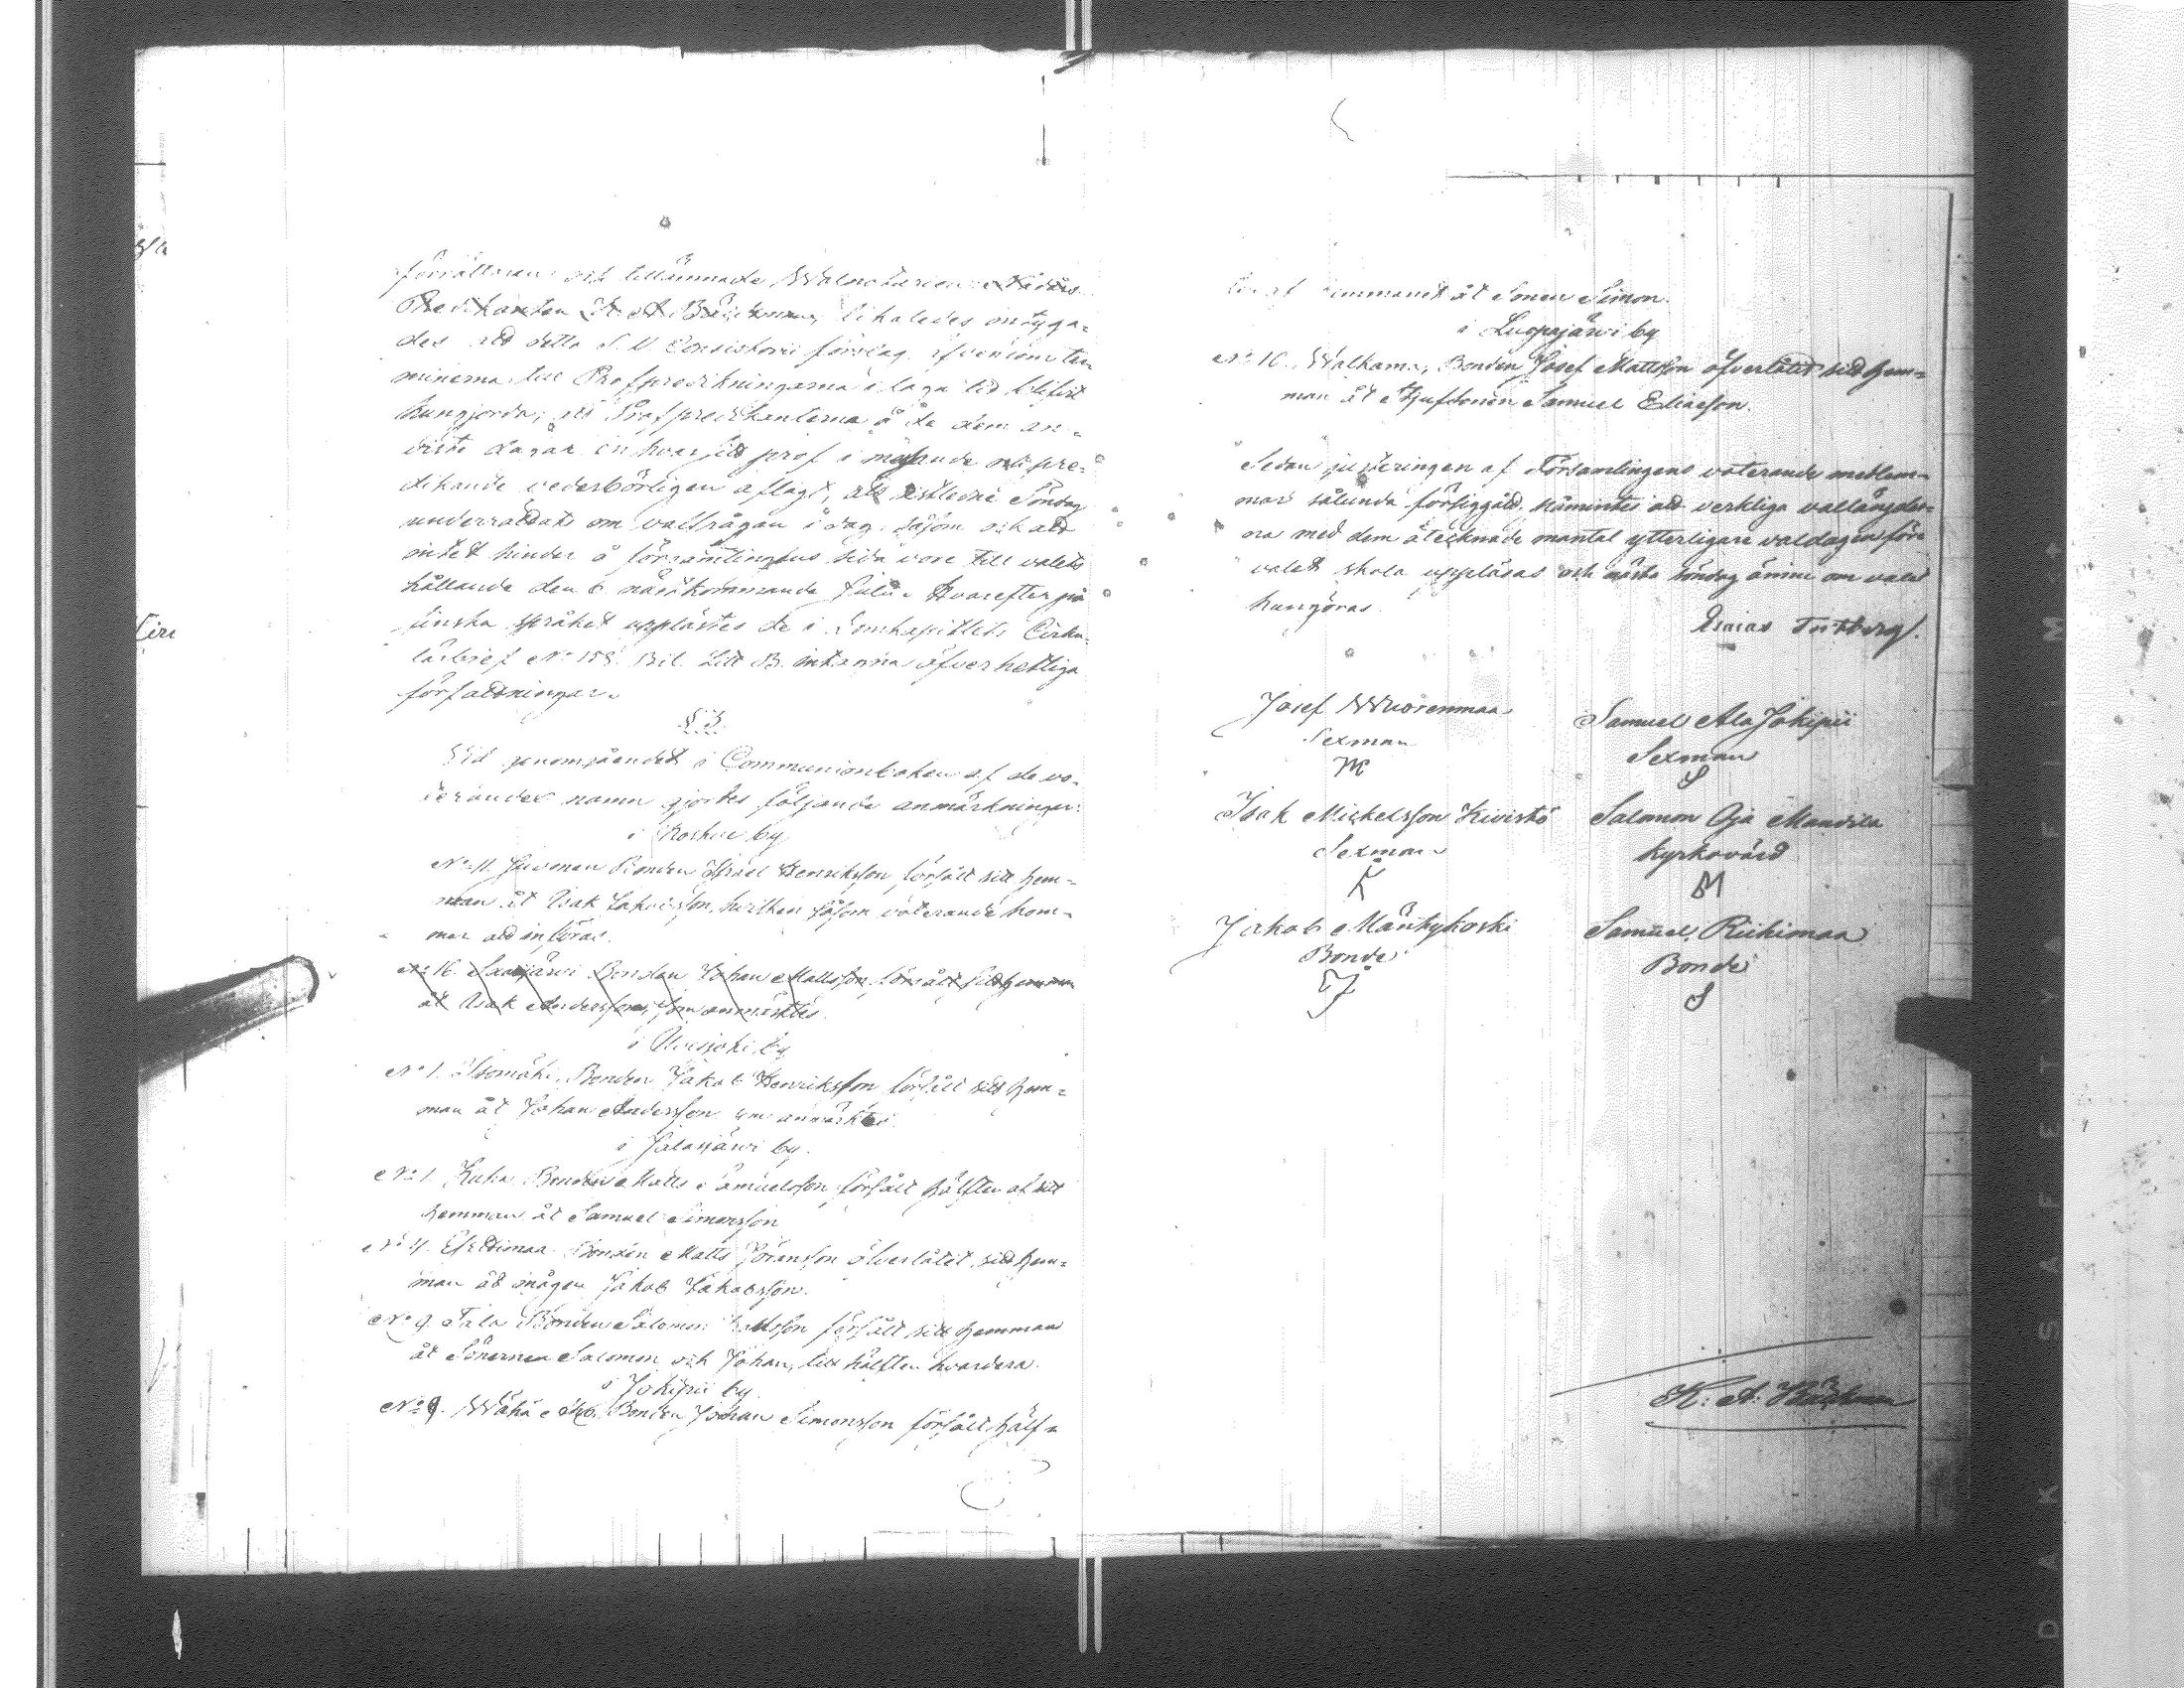 förrättaren och tillämnade Walnotarien
Predikanten likaledes intyga=
des att detta S. V. Consistorii förslag, äfvensom ter
minerna till Profpredikningarna i laga tid blifvit
kungjorda; att Profpredikanterna å de dem an=
viste dagar en hvar sitt prof i mässande och pre=
dikande vederbörligen aflagt, att sistledne Söndag
underrättats om valfrågan i dag, såsom och att
intet hinder å församlingens sida vore till valets
hållande den 6 nästkommande Julii. Hvarefter på
finska språket upplästes de i Domkapitlets Cirku=
lärbref No 158. Bil. Litt B. intagna öfverhetliga
författningar.
§ 3.
Vid genomgåendet i Communionboken af de vo=
terandes namn gjordes följande anmärkningar:
i Koskue by
No 11. Bonden Israel Henriksson, försålt sitt hem=
man åt Isak, hvilken såsom voterande kom=
mer att införas.
No 16. Bonden Johan Mattsson, försålt sitt hemman
åt Isak Andersson, som anmärktes.
i by
No 1. Isomäki, Bonden Jakob Henriksson försålt sitt hem=
man åt Johan Andersson som anmärktes.
i Jalasjärvi by.
No 1. Bonden Matts Samuelsson, försålt hälften af sitt
hemman åt Samuel Simonsson
No 4. Bonden Matts Göransson öfverlåtit sitt hem=
man åt mågen Jakob Jakobsson.
No 9. Tala Bonden Salomon försålt sitt hemman
åt Sönernea Salomon och Johan, till hälften hvardera.
i Jokipii by.
No 9. Bonden Johan Simonsson försålt hälf=
ten af hemmanet åt Sonen Simon.
i Luopajärvi by
No 16. Walkama, Bonden Josef Mattsson öfverlåtit sitt hem=
man åt Styfsonen Samuel Eliasson.
Sedan justeringen af Församlingens voterande medlem=
mar sålunda försiggått, påmintes att verkliga vallängder=
na med dem åtecknade mantal ytterligare valdagen före
valet skola uppläsas och nästa söndag ännu om valet
kungöras.
Esaias
Josef Wuorenmaa
Sexman
Samuel Ala Jokipii
Sexman
S
Isak Mickelsson Kivistö
Sexman
K
Salomon Oja Mandila
Kyrkovärd
M
Jakob Mäntykoski
Bonde
J
Samuel Riihimaa
Bonde
S
K. A.
DAKSAFETYAFILM